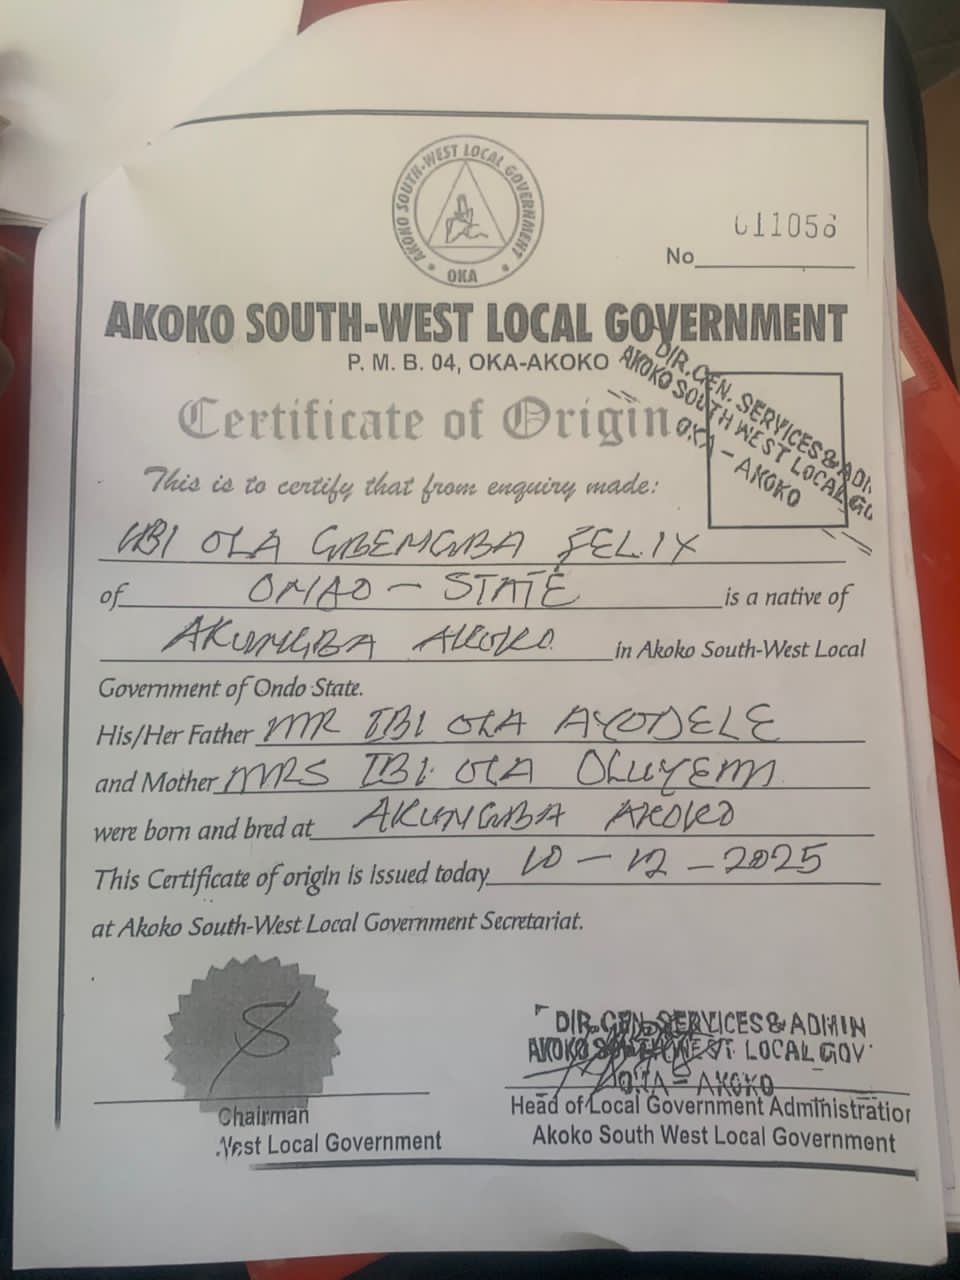 AKOKO SOUTH-WEST LOCAL GOVERNMENT
OKA
011058
No
AKOKO SOUTH-WEST LOCAL GOVERNMENT
P. M. B. 04, OKA-AKOKO
DIR. GEN. SERVICES & ADM
AKOKO SOUTH WEST LOCAL GO
OKA - AKOKO
Certificate of Origin
This is to certify that from enquiry made:
IBI OLA GBEMGBA FELIX
of ONDO - STATE is a native of
AKUNGBA AKOKO in Akoko South-West Local
Government of Ondo State.
His/Her Father MR IBI OLA AYODELE
and Mother MRS IBI OLA OLUYEMI
were born and bred at AKUNGBA AKOKO
This Certificate of origin is issued today 10 - 12 - 2025
at Akoko South-West Local Government Secretariat.
DIR. GEN. SERVICES & ADMIN
AKOKO SOUTH WEST LOCAL GOV
OKA - AKOKO
Chairman
West Local Government
Head of Local Government Administration
Akoko South West Local Government